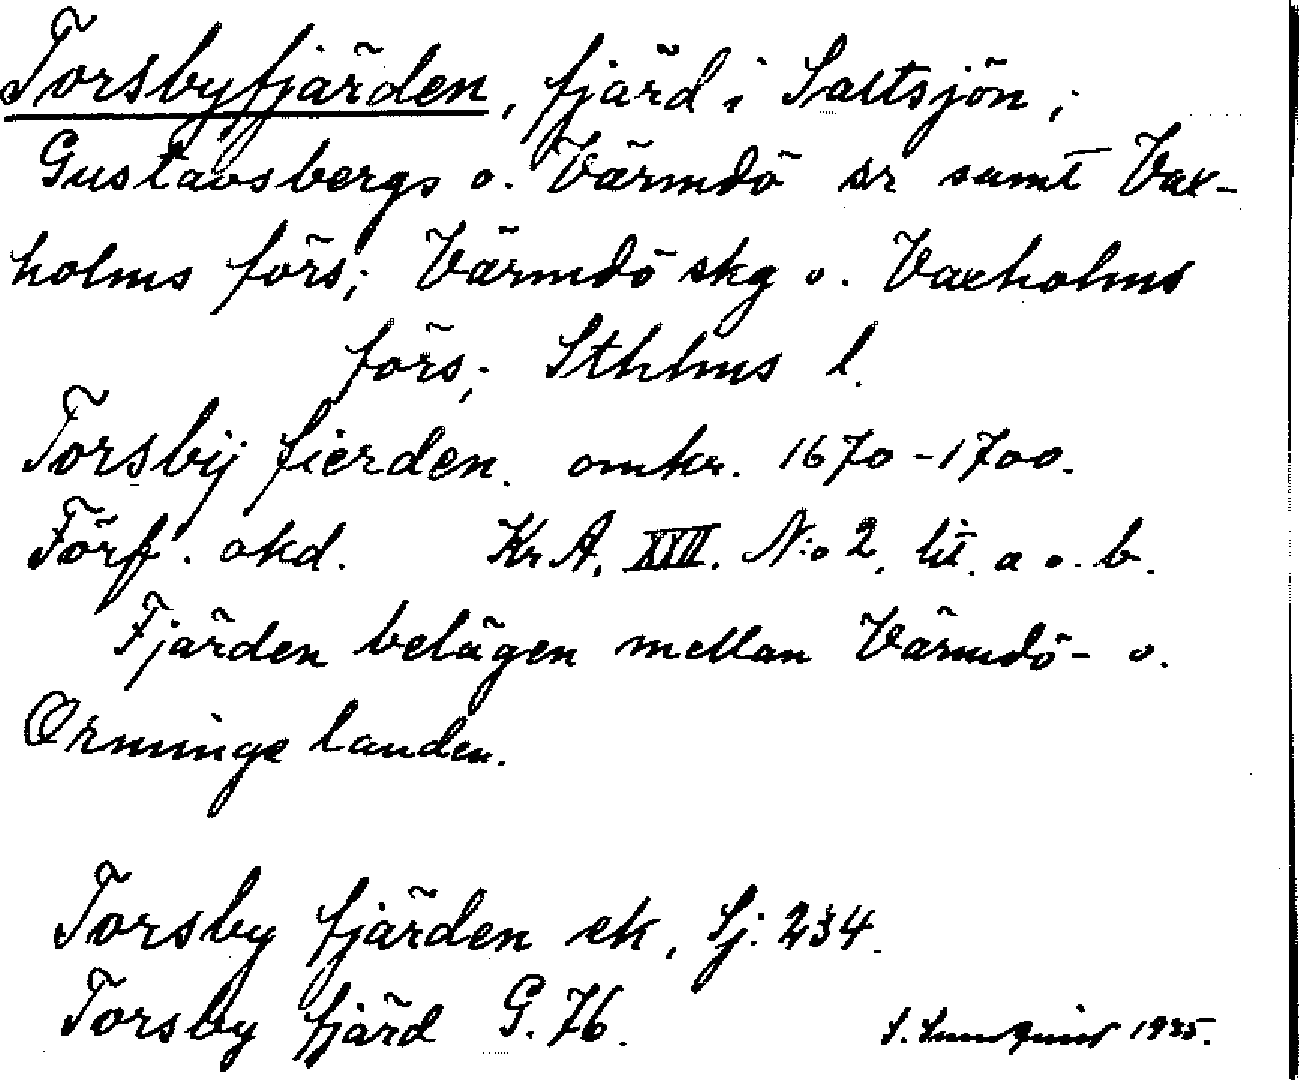 Torsbyfjärden, fjärd i Saltsjön,
Gustavsbergs o. Värmdö sr samt Vax-
holms förs; Värmdö skg o. Vaxholms
förs; Sthlms l.
Torsbÿ fierden. omkr. 1670-1700.
Förf. okd. Kr A. XIII. N:o 2. lit. a o. b.
Fjärden belägen mellan Värmdö- o.
Orminge landen.
Torsby fjärden ek, Sj. 234.
Torsby fjärd G. 76.
1935.